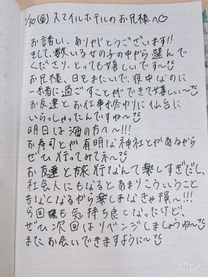 1/30(金) スマイルホテルのお兄様へ♡
お誘い、ありがとうございます!!
そして、数いる女の子の中から選んで
くださり、とっても嬉しいです〜
お兄様、日をまたいで、夜中なのに
一緒に過ごすことができて嬉しい〜
お友達とお仕事終わりに仙台に
いらっしゃったんですね〜
明日は海の方へ〜!!!
お寿司とか有名な神社とかあるから
ぜひ行ってみてネ〜
お友達と旅行なんて楽しすぎだし、
社会人にもなるとあまりこういうこと
もなくなるから楽しまなきゃ損〜!!!
今回も気持ち良くなったけど、
ぜひ次回はリベンジしましょうね〜
またお会いできますように〜